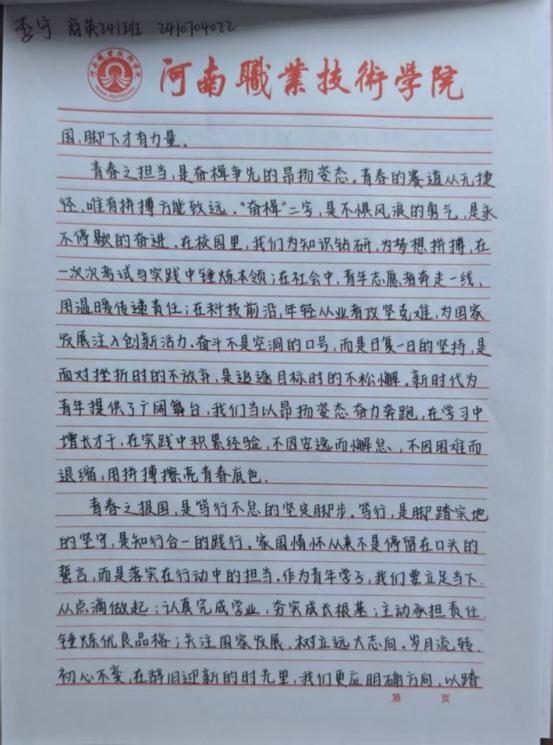 李宁 商英241班 2410704022
河南職業技術学院
国,脚下才有力量。
青春之担当,是奋楫争先的昂扬姿态。青春的赛道从无捷
径,唯有拼搏方能致远。“奋楫”二字,是不惧风浪的勇气,是永
不停歇的奋进。在校园里,我们为知识钻研,为梦想拼搏,在
一次次考试与实践中锤炼本领;在社会中,青年志愿者奔走一线,
用温暖传递责任;在科技前沿,年轻从业者攻坚克难,为国家
发展注入创新活力。奋斗不是空洞的口号,而是日复一日的坚持,是
面对挫折时的不放弃,是追逐目标时的不松懈。新时代为
青年提供了广阔舞台,我们当以昂扬姿态奋力奔跑,在学习中
增长才干,在实践中积累经验,不因安逸而懈怠、不因困难而
退缩,用拼搏擦亮青春底色.
青春之报国,是笃行不怠的坚定脚步。笃行,是脚踏实地
的坚守,是知行合一的践行。家国情怀从来不是停留在口头的
誓言,而是落实在行动中的担当。作为青年学子,我们要立足当下.
从点滴做起:认真完成学业,夯实成长根基;主动承担责任
锤炼优良品格;关注国家发展,树立远大志向。岁月流转.
初心不变,在辞旧迎新的时光里,我们更应明确方向,以踏
第 页